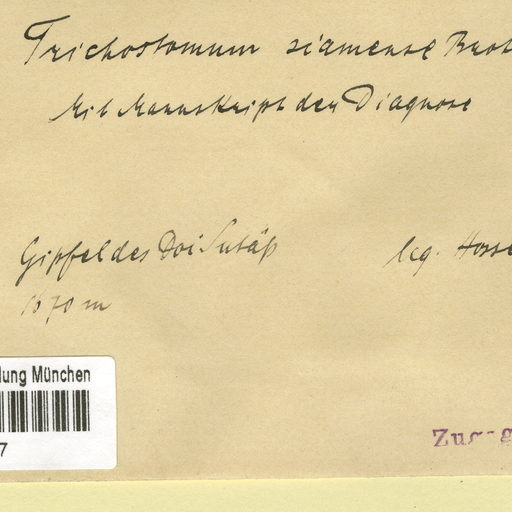 Trichostomum siamense Brot
Mit Manuskript der Diagnose
Gipfel des Doi Sutäp
leg. Hosse
1670 m
lung München
7